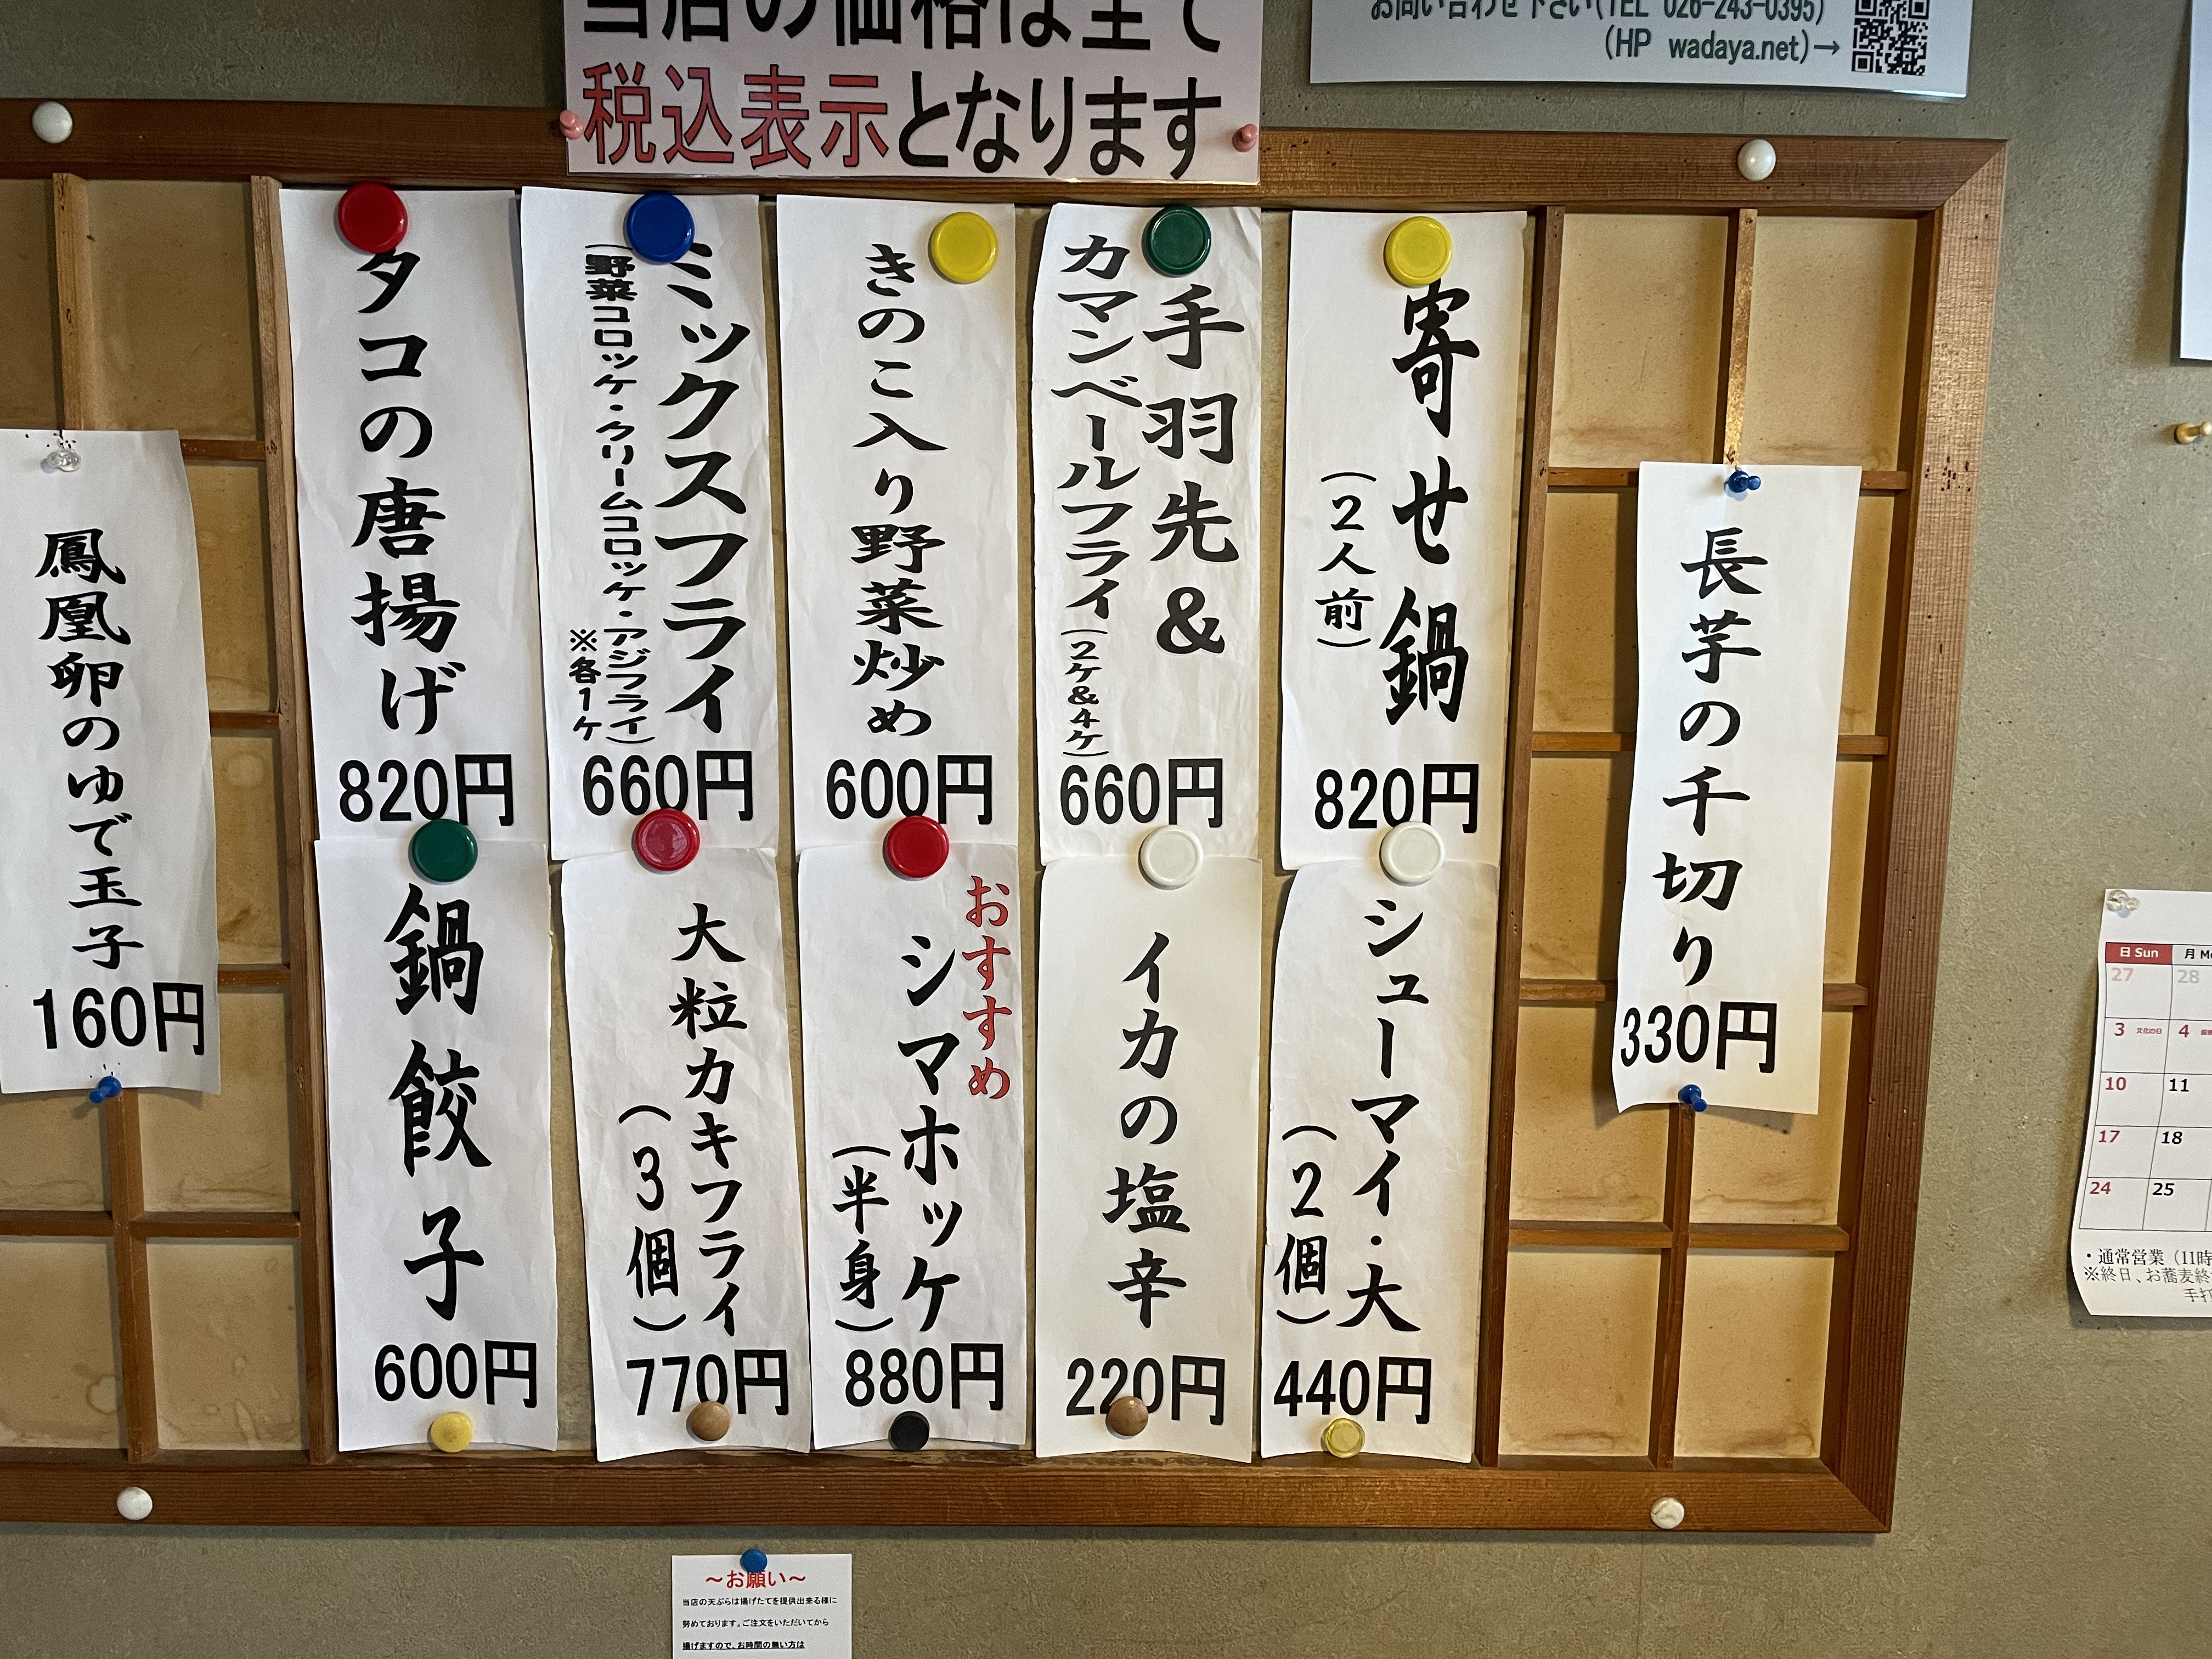 当店の価格は全て
税込表示となります
お問い合わせ下さい(TEL 026-243-0395)
(HP wadaya.net)→
長芋の千切り
330円
寄せ鍋
(2人前)
820円
手羽先&
カマンベールフライ(2ケ&4ケ)
660円
きのこ入り野菜炒め
600円
ミックスフライ
(野菜コロッケ・クリームコロッケ・アジフライ)
※各1ケ
660円
タコの唐揚げ
820円
シューマイ・大
(2個)
440円
イカの塩辛
220円
おすすめ
シマホッケ
(半身)
880円
大粒カキフライ
(3個)
770円
鍋餃子
600円
鳳凰卵のゆで玉子
160円
日 Sun 月 M
27 28
3 文化の日 4
10 11
17 18
24 25
・通常営業(11時
※終日、お蕎麦終
手打
～お願い～
当店の天ぷらは揚げたてを提供出来る様に
努めております。ご注文をいただいてから
揚げますので、お時間の無い方は